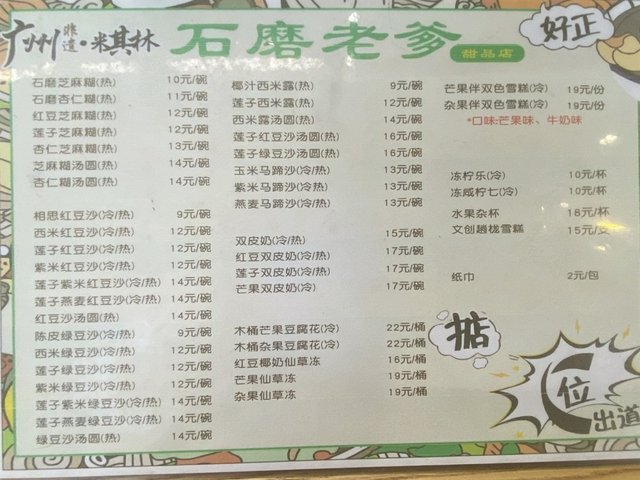 广州 非遗·米其林 石磨老爹 甜品店 好正
石磨芝麻糊(热) 10元/碗
石磨杏仁糊(热) 11元/碗
红豆芝麻糊(热) 12元/碗
莲子芝麻糊(热) 12元/碗
杏仁芝麻糊(热) 13元/碗
芝麻糊汤圆(热) 14元/碗
杏仁糊汤圆(热) 14元/碗
相思红豆沙(冷/热) 9元/碗
西米红豆沙(冷/热) 12元/碗
莲子红豆沙(冷/热) 12元/碗
紫米红豆沙(冷/热) 12元/碗
莲子紫米红豆沙(冷/热) 14元/碗
莲子燕麦红豆沙(冷/热) 14元/碗
红豆沙汤圆(热) 14元/碗
陈皮绿豆沙(冷/热) 9元/碗
西米绿豆沙(冷/热) 12元/碗
莲子绿豆沙(冷/热) 12元/碗
紫米绿豆沙(冷/热) 12元/碗
莲子紫米绿豆沙(冷/热) 14元/碗
莲子燕麦绿豆沙(冷/热) 14元/碗
绿豆沙汤圆(热) 14元/碗
椰汁西米露(热) 9元/碗
莲子西米露(热) 12元/碗
西米露汤圆(热) 14元/碗
莲子红豆沙汤圆(热) 16元/碗
莲子绿豆沙汤圆(热) 16元/碗
玉米马蹄沙(冷/热) 13元/碗
紫米马蹄沙(冷/热) 13元/碗
燕麦马蹄沙(冷/热) 13元/碗
双皮奶(冷/热) 15元/碗
红豆双皮奶(冷/热) 17元/碗
莲子双皮奶(冷/热) 17元/碗
芒果双皮奶(冷) 17元/碗
木桶芒果豆腐花(冷) 22元/桶
木桶杂果豆腐花(冷) 22元/桶
红豆椰奶仙草冻 16元/桶
芒果仙草冻 19元/桶
杂果仙草冻 19元/桶
芒果伴双色雪糕(冷) 19元/份
杂果伴双色雪糕(冷) 19元/份
*口味:芒果味、牛奶味
冻柠乐(冷) 10元/杯
冻咸柠七(冷) 10元/杯
水果杂杯 18元/杯
文创趟栊雪糕 15元/支
纸巾 2元/包
掂
C位
出道